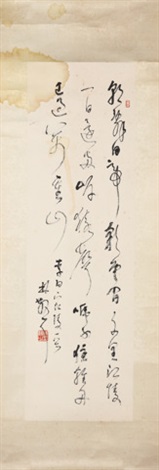 朝辭白帝彩雲間千里江陵
一日還兩岸猿聲啼不住輕舟
已過萬重山
李白下江陵一首
林散之